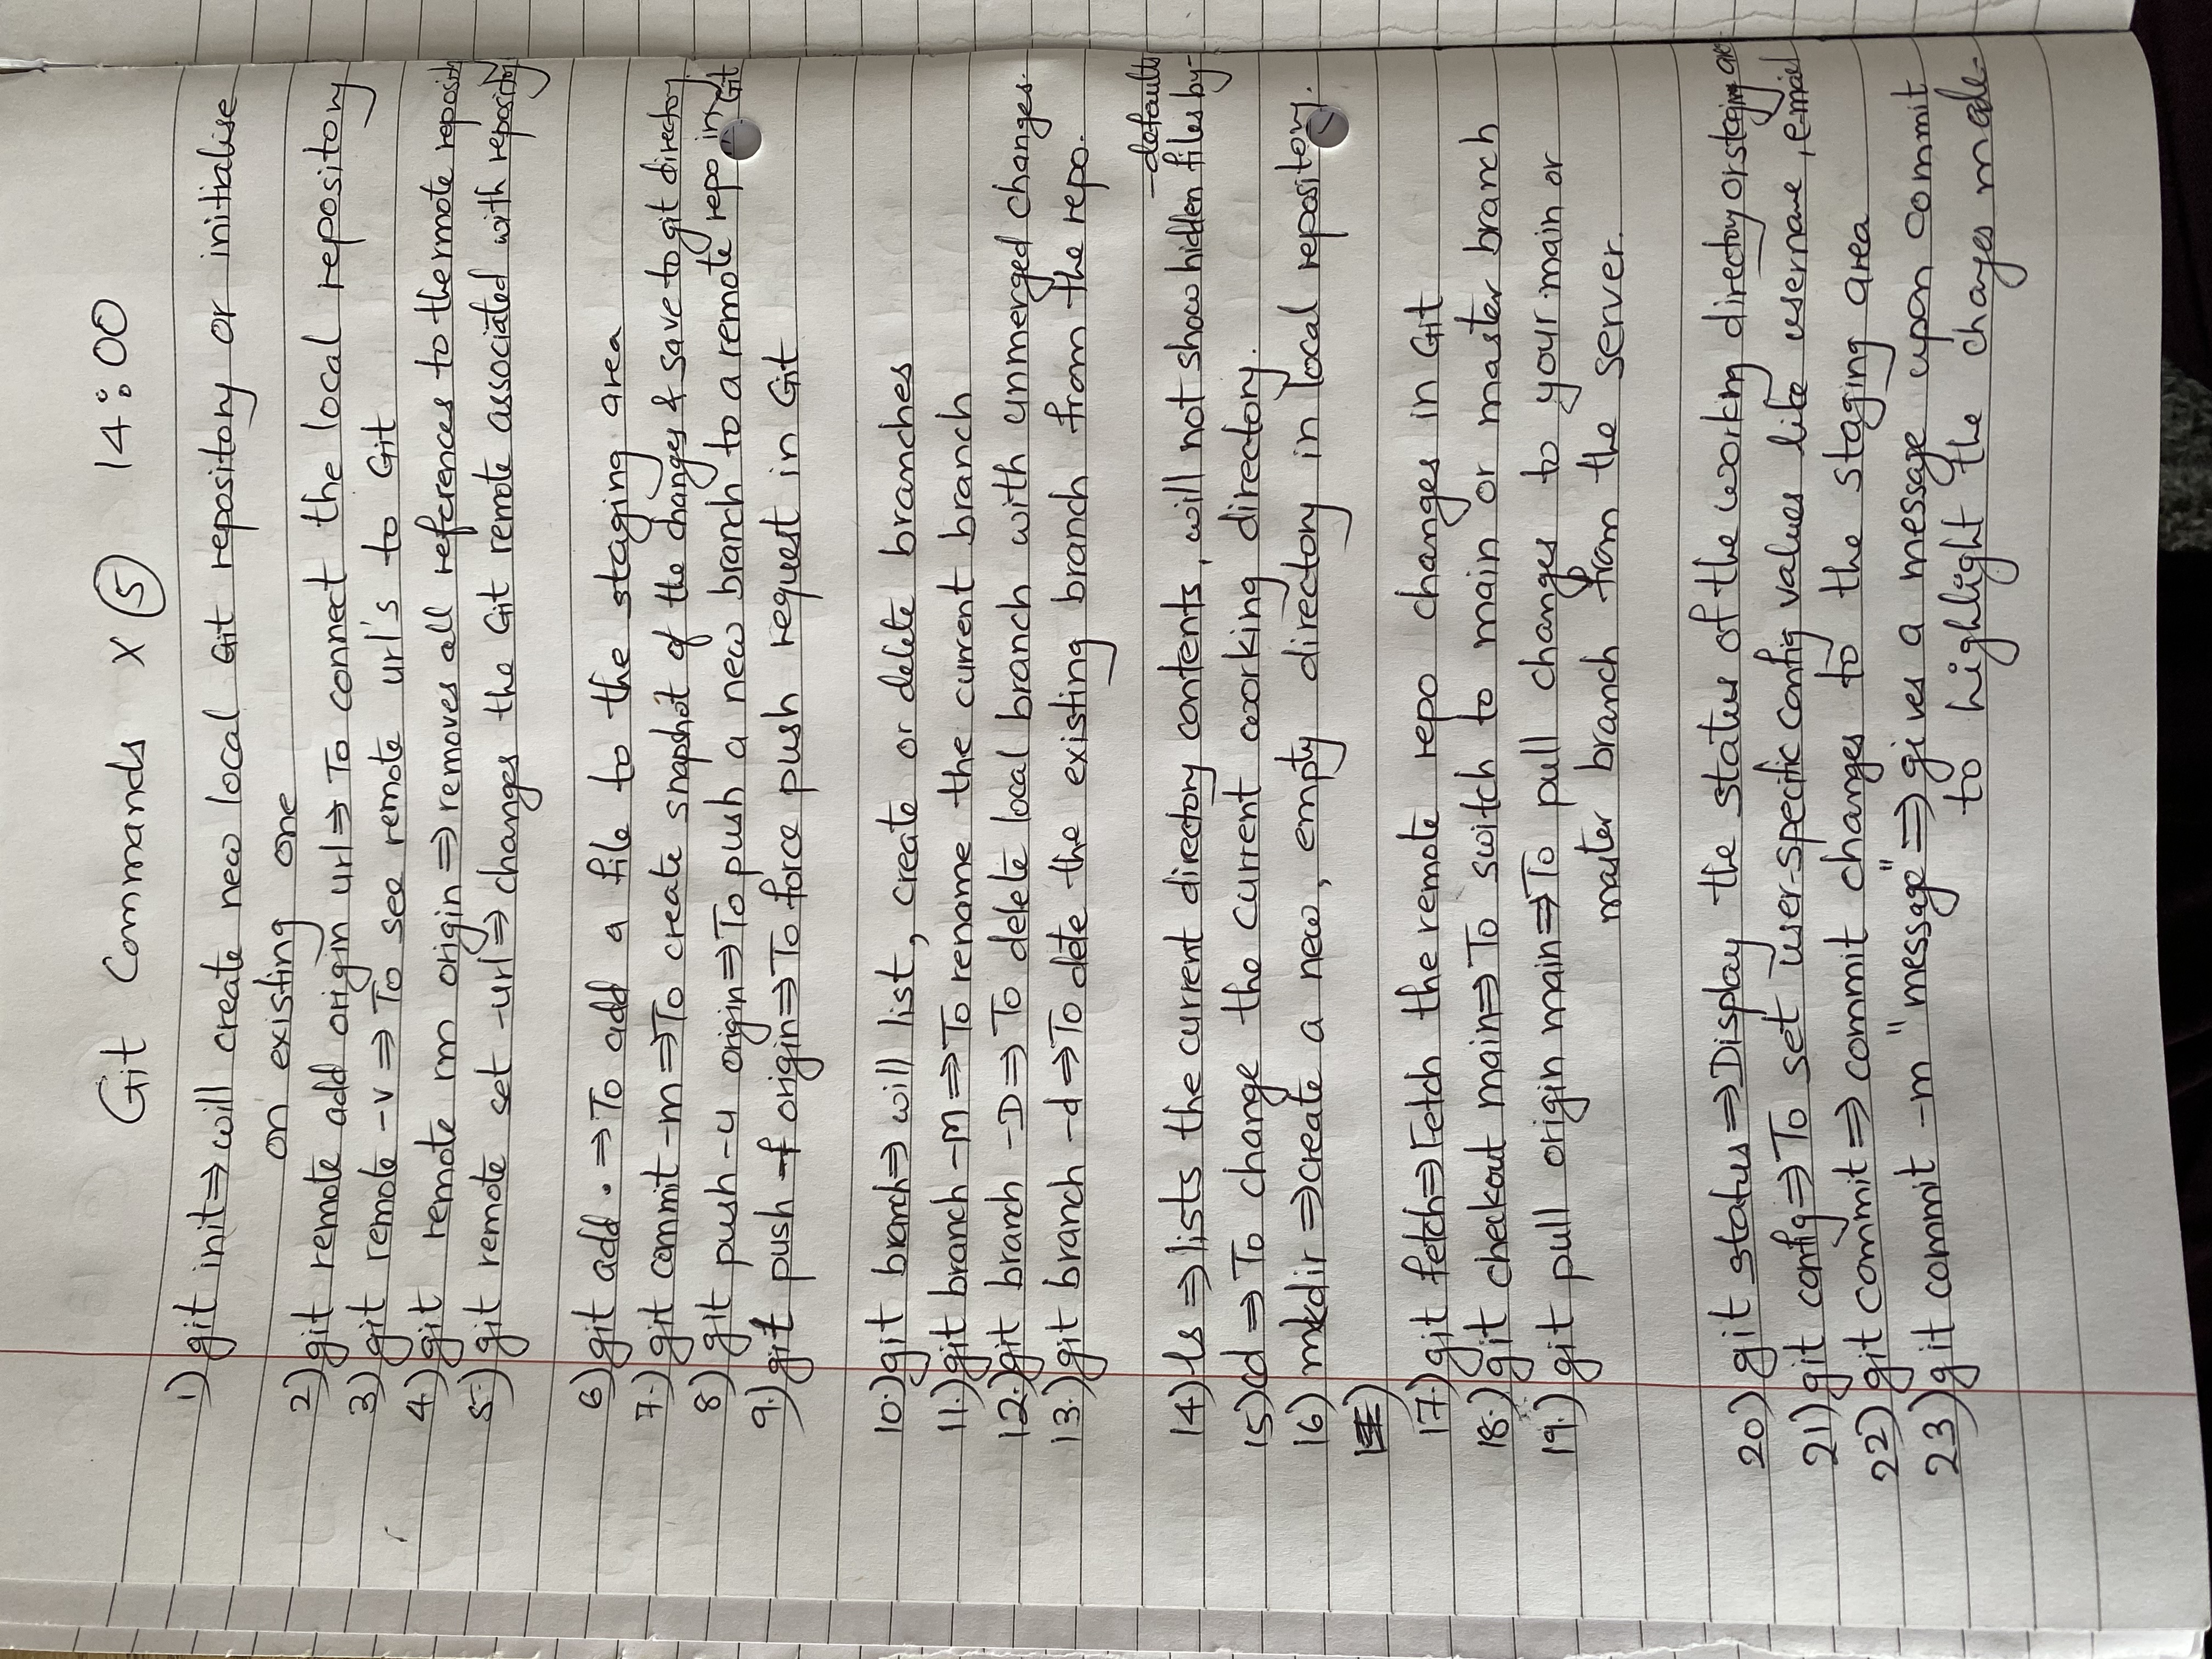 Git Commands x 5 14:00
1) git init ⇒ will create new local Git repository or initialise
on existing one
2) git remote add origin url ⇒ To connect the local repository
3) git remote -v ⇒ To see remote url's to Git
4) git remote rm origin ⇒ removes all references to the rmote reposity
5.) git remote set -url ⇒ changes the Git remote associated with repository
6) git add . ⇒ To add a file to the staging area
7.) git commit -m ⇒ To create snapshot of the changes & save to git directory.
8) git push -u origin ⇒ To push a new branch to a remote repo in Git
9.) git push -f origin ⇒ To force push request in Git
10.) git branch ⇒ will list, create or delete branches
11.) git branch -M ⇒ To rename the current branch
12.) git branch -D ⇒ To delete local branch with unmerged changes.
13.) git branch -d ⇒ To dete the existing branch from the repo.
-default
14) ls ⇒ lists the current directory contents, will not show hidden files by-
15) cd ⇒ To change the current working directory.
16) mkdir ⇒ create a new, empty directory in local repository.
17.) git fetch ⇒ Fetch the remote repo changes in Git
18.) git checkout main ⇒ To switch to main or master branch
19.) git pull origin main ⇒ To pull changes to your main or
master branch from the server.
20) git status ⇒ Display the status of the working directory or staging are
21) git config ⇒ To set user-specific config values like username, email
22) git commit ⇒ commit changes to the staging area
23) git commit -m "message" ⇒ gives a message upon commit
to highlight the changes made.